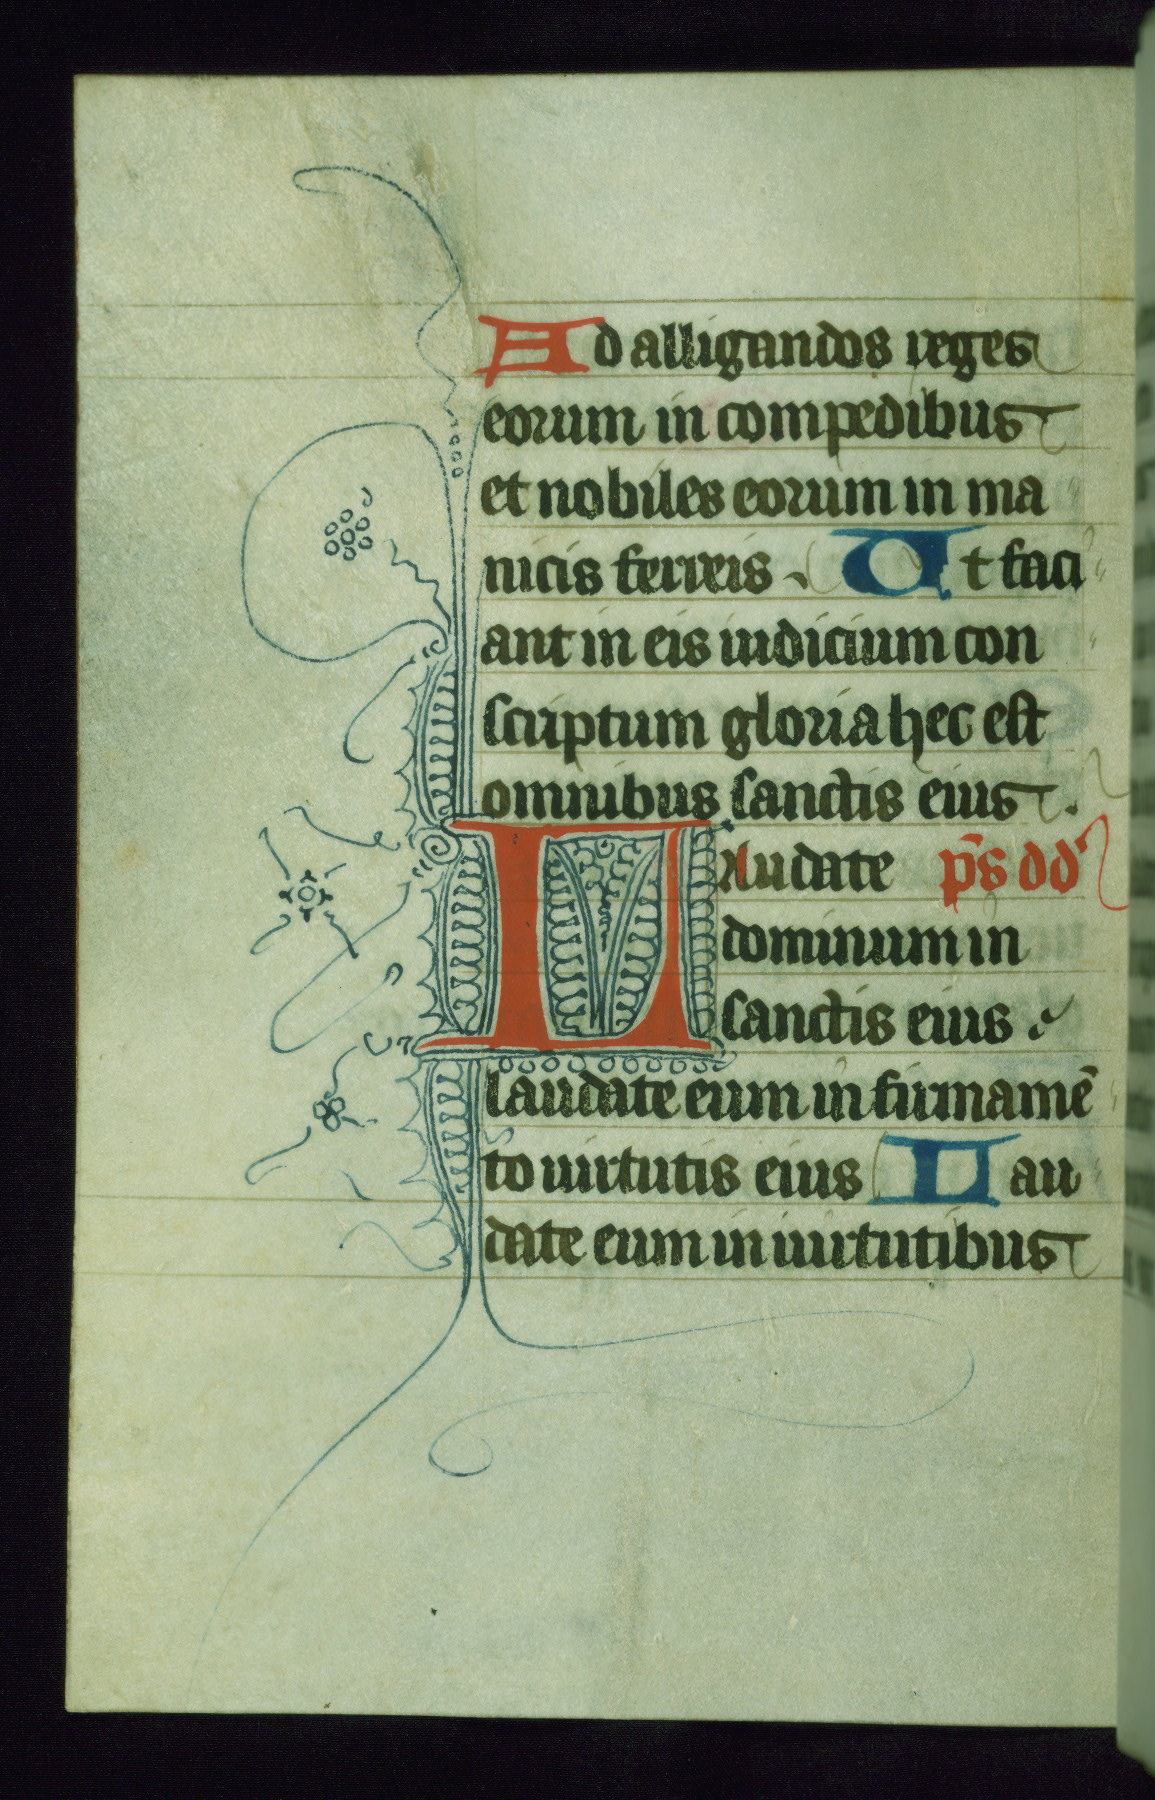 Ad alligandos reges
eorum in compedibus
et nobiles eorum in ma
nicis ferreis. Ut faci
ant in eis iudicium con
scriptum gloria hec est
omnibus sanctis eius.
Laudate p̄s dd
dominum in
sanctis eius.
laudate eum in firmamē
to uirtutis eius Lau
date eum in uirtutibus